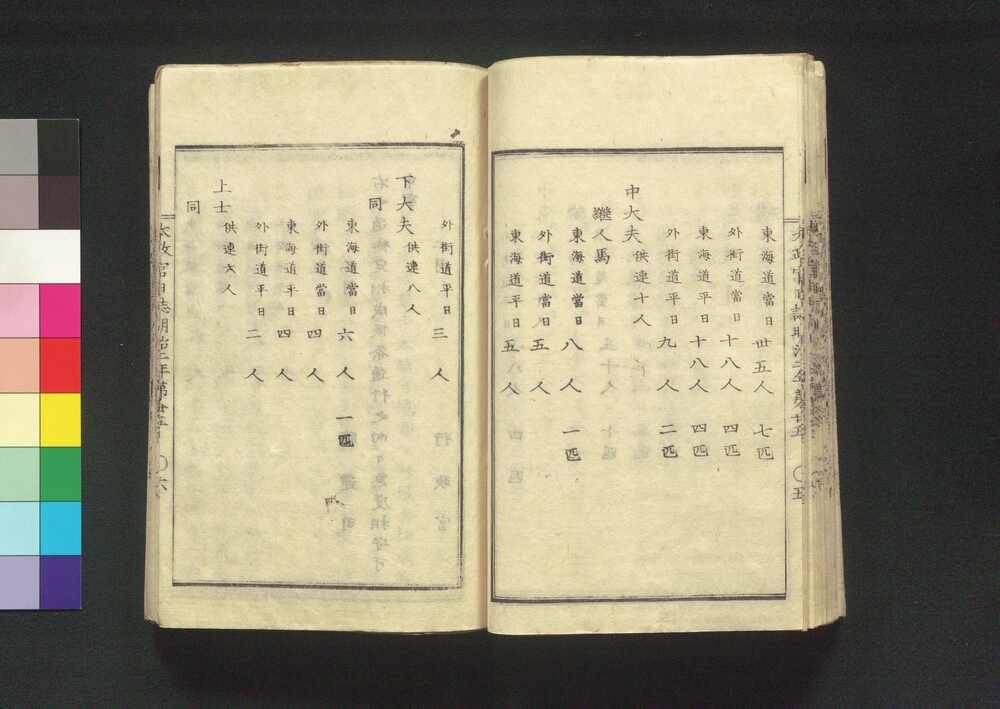 東海道當日 卅五人 七匹
外街道當日 十八人 四匹
東海道平日 十八人 四匹
外街道平日 九人 二匹
中大夫 供連十人
繼人馬
東海道當日 八人 一匹
外街道當日 五人
東海道平日 五人
外街道平日 三人
下大夫 供連八人
同
東海道當日 六人 一匹
外街道當日 四人
東海道平日 四人
外街道平日 二人
上士 供連六人
同
太政官日誌明治二年第廿五 〇六